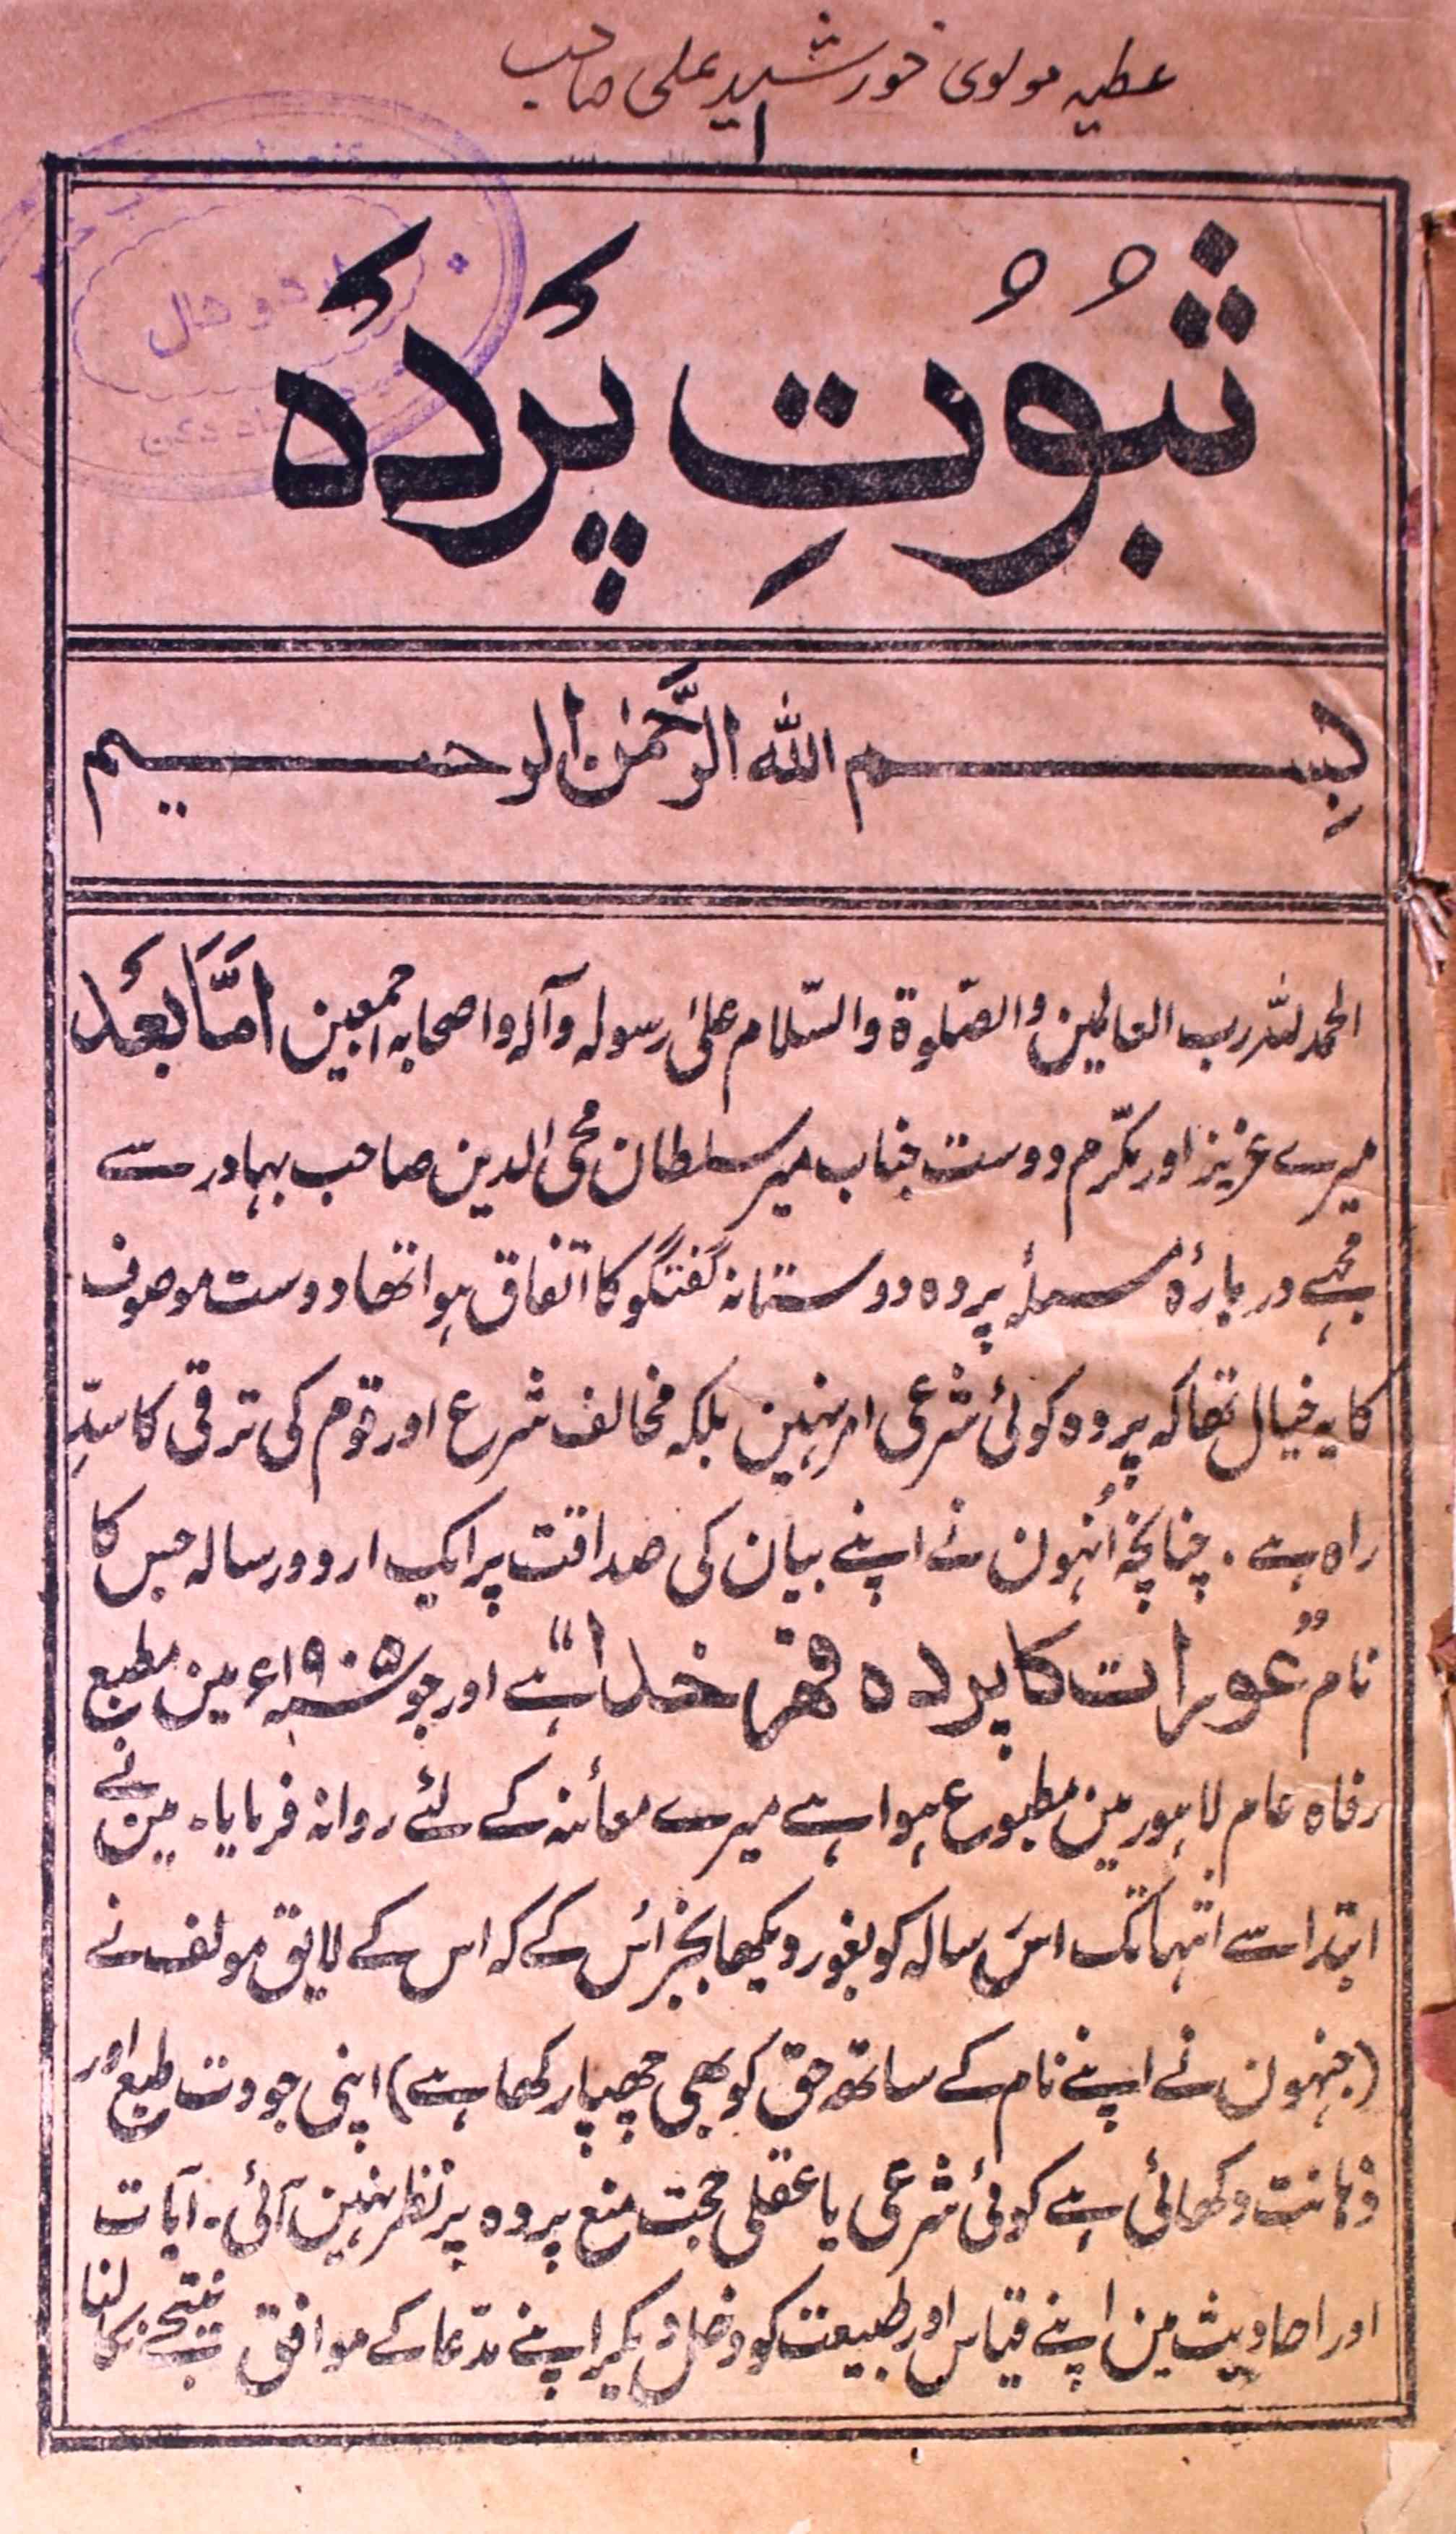 عطیہ مولوی خورشید علی صاحب
۱
اردو ہال
ثبُوُتِ پَردَہ
بِسم اللہ الرَّحمٰن الرحیم
الحمد للہ رب العالمین والصّلوۃ والسّلام علیٰ رسولہ وآلہ واصحابہ اجمعین امَّا بَعَد
میرے عزیز اور مکرّم دوست جناب میر سلطان محی الدین صاحب بہادر سے
مجھے دربارۂ مسئلۂ پردہ دوستانہ گفتگو کا اتفاق ہوا تھا دوست موصوف
کا یہ خیال تھا کہ پردہ کوئی شرعی امر نہین بلکہ مخالف شرع اور قوم کی ترقی کا سدِّ
راہ ہے . چنانچہ اُنہون نے اپنے بیان کی صداقت پر ایک اردو رسالہ جس کا
نام ”عورات کا پردہ قہر خدا“ ہے اور جو سنہ ۱۹۰۵ء مین مطبع
رفاہ عام لاہور مین مطبوع ہوا ہے میرے معائنہ کے لئے روانہ فرمایا۔ مین نے
ابتدا سے انتہا تک اس رسالہ کو بغور دیکھا بجز اس کے کہ اس کے لایق مولف نے
(جنہون نے اپنے نام کے ساتھ حق کو بھی چھپا رکھا ہے) اپنی جودت طبع اور
ذہانت دکھائی ہے کوئی شرعی یا عقلی حجت منع پردہ پر نظر نہین آئی۔ آیات
اور احادیث مین اپنے قیاس اور طبیعت کو دخل دیکر اپنے مدّعا کے موافق نتیجے نکالنا